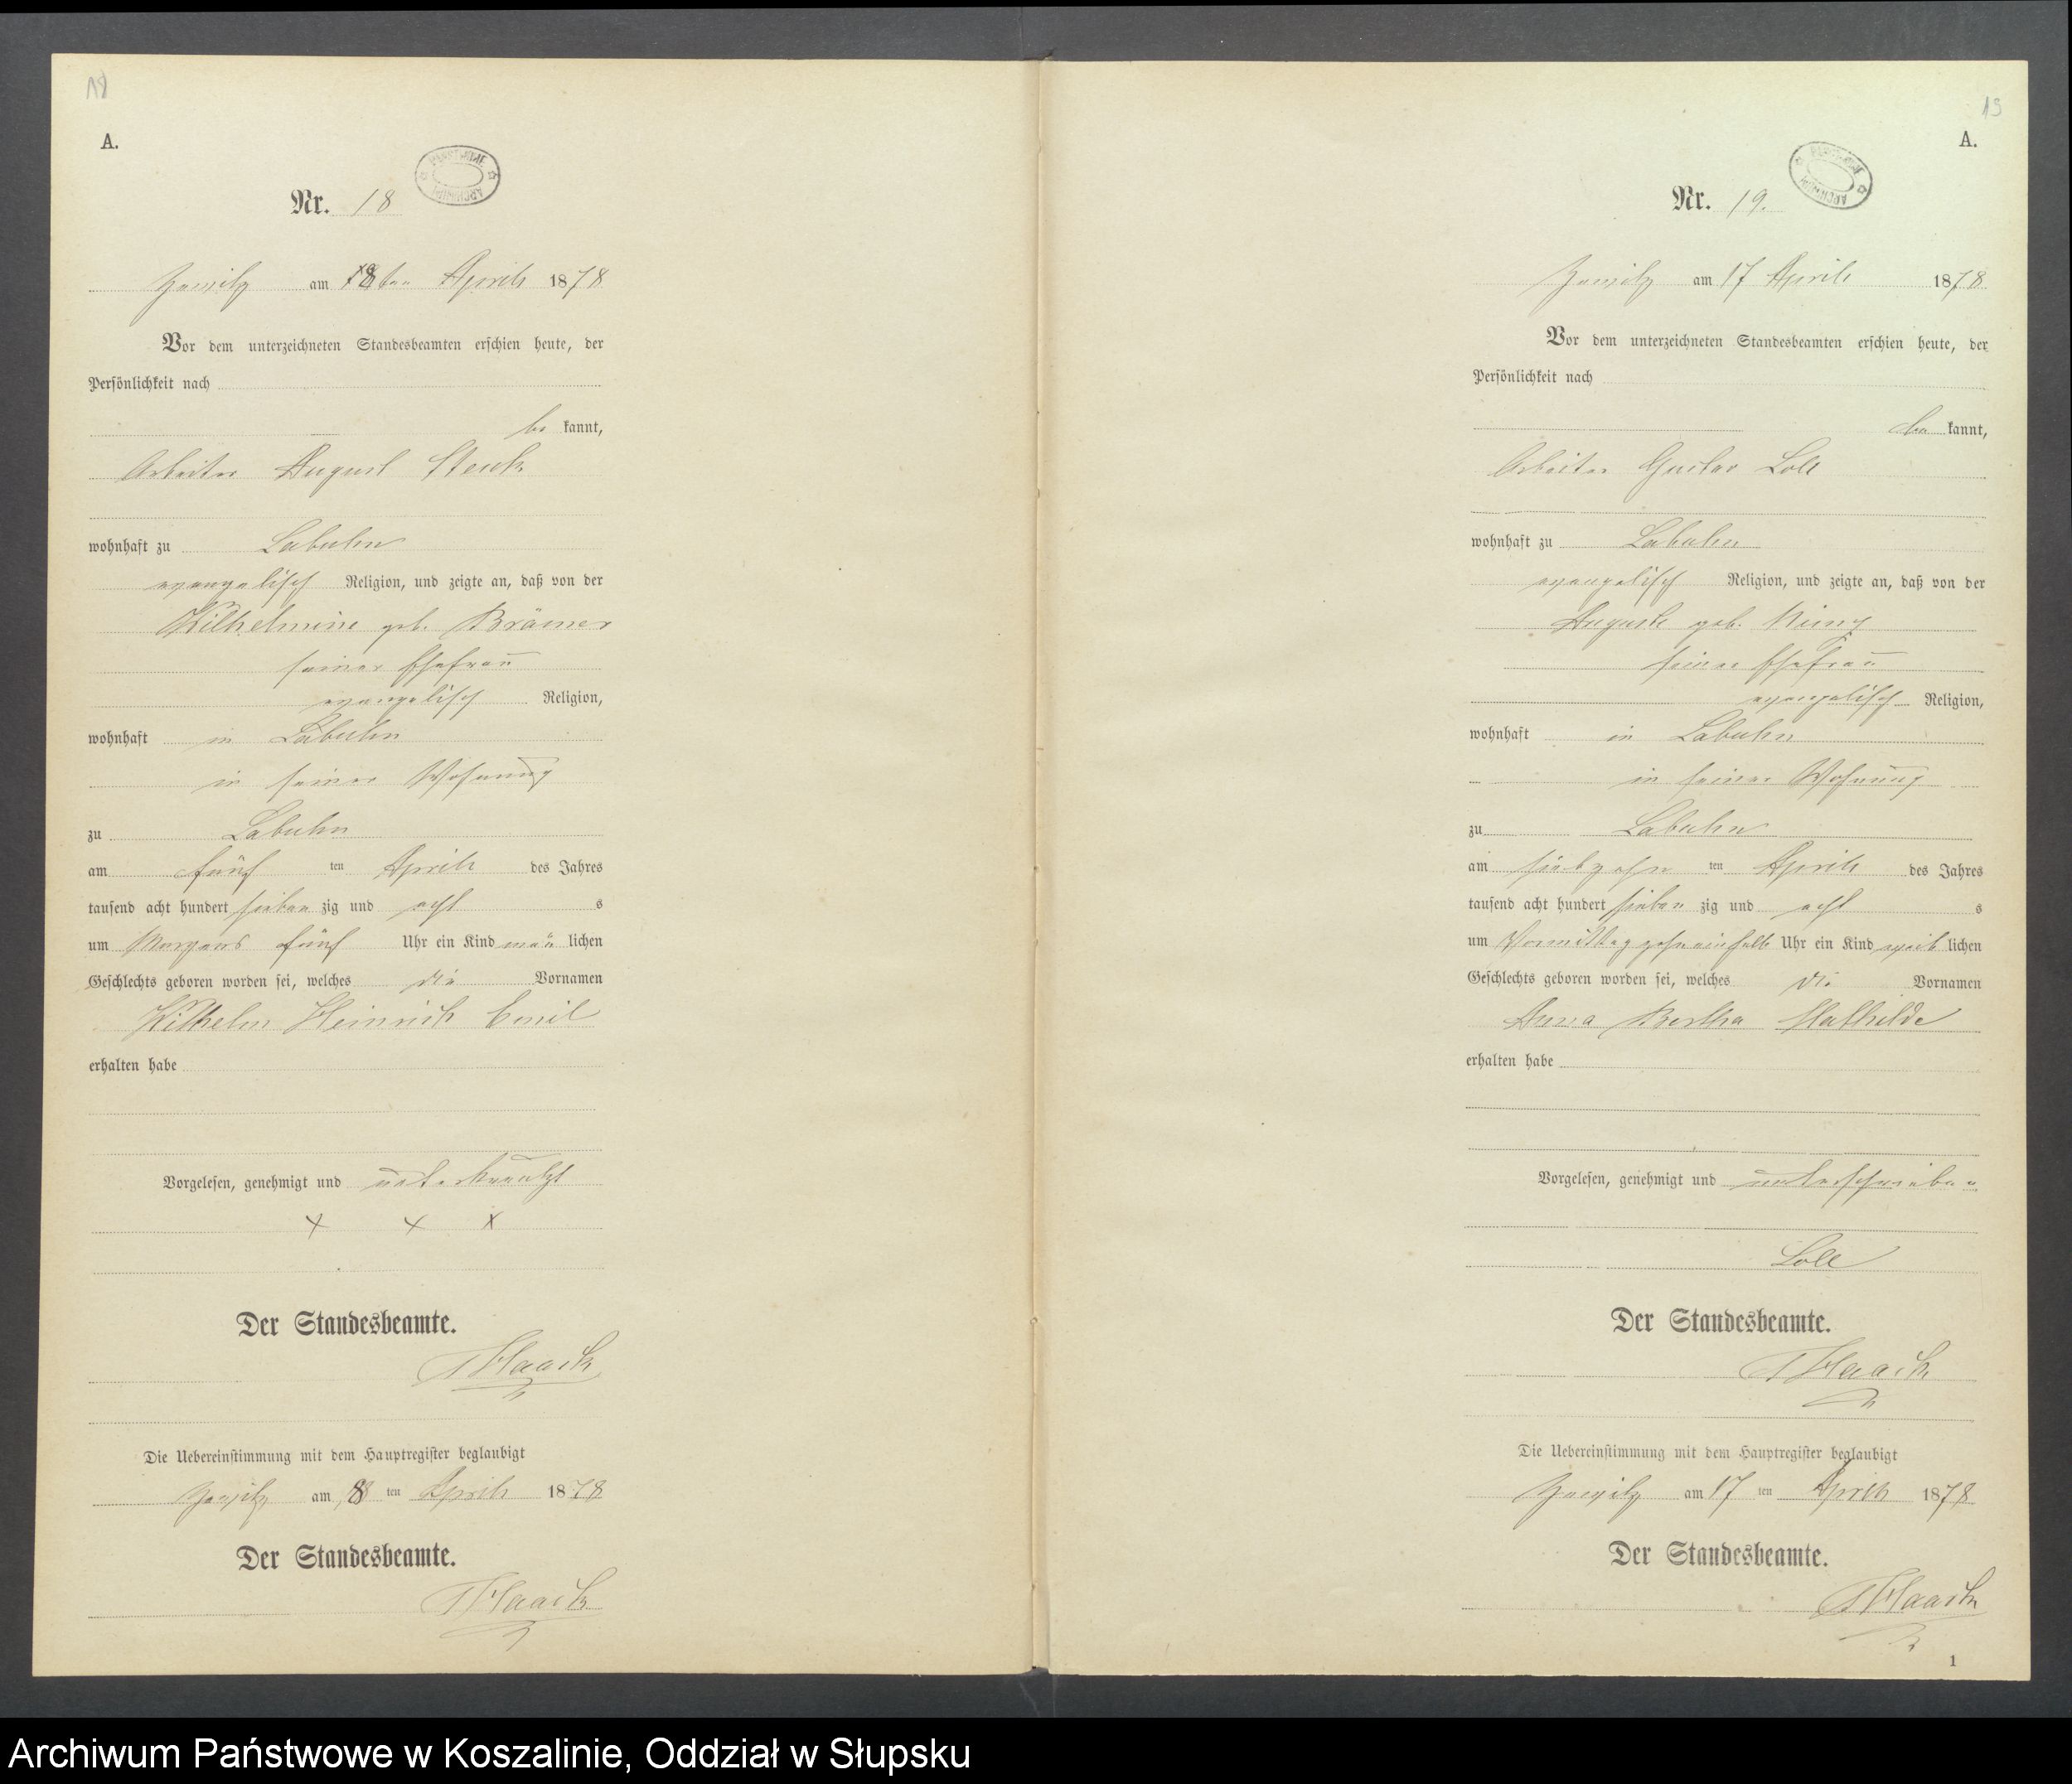 18
A.
Nr. 18
am 18ten April 1878
Vor dem unterzeichneten Standesbeamten erschien heute, der
Persönlichkeit nach
be kannt,
Arbeiter August
wohnhaft zu Labuhn
evangelisch Religion, und zeigte an, daß von der
Wilhelmine geb. Brämer
seiner Ehefrau
evangelisch Religion,
wohnhaft in Labuhn
in seiner Wohnung
zu Labuhn
am fünf ten April des Jahres
tausend acht hundert sieben zig und acht s
um Morgens fünf Uhr ein Kind män lichen
Geschlechts geboren worden sei, welches die Vornamen
Wilhelm Heinrich Emil
erhalten habe
Vorgelesen, genehmigt und unterkreuzt
x x x
Der Standesbeamte.
Haack
Die Uebereinstimmung mit dem Hauptregister beglaubigt
am 8 ten April 1878
Der Standesbeamte.
Haack
19
A.
PAŃSTWOWE ARCHIWUM
Nr. 19.
am 17 April 1878
Vor dem unterzeichneten Standesbeamten erschien heute, der
Persönlichkeit nach
be kannt,
Arbeiter Gustav Loll
wohnhaft zu Labuhn
evangelisch Religion, und zeigte an, daß von der
Auguste geb.
seiner Ehefrau
evangelisch Religion,
wohnhaft in Labuhn
in seiner Wohnung
zu Labuhn
am siebzehn ten April des Jahres
tausend acht hundert sieben zig und acht s
um Vormittag Uhr ein Kind weib lichen
Geschlechts geboren worden sei, welches die Vornamen
Anna Bertha Mathilde
erhalten habe
Vorgelesen, genehmigt und unterschrieben
Loll
Der Standesbeamte.
Haack
Die Uebereinstimmung mit dem Hauptregister beglaubigt
am 17 ten April 1878
Der Standesbeamte.
Haack
1
Archiwum Państwowe w Koszalinie, Oddział w Słupsku